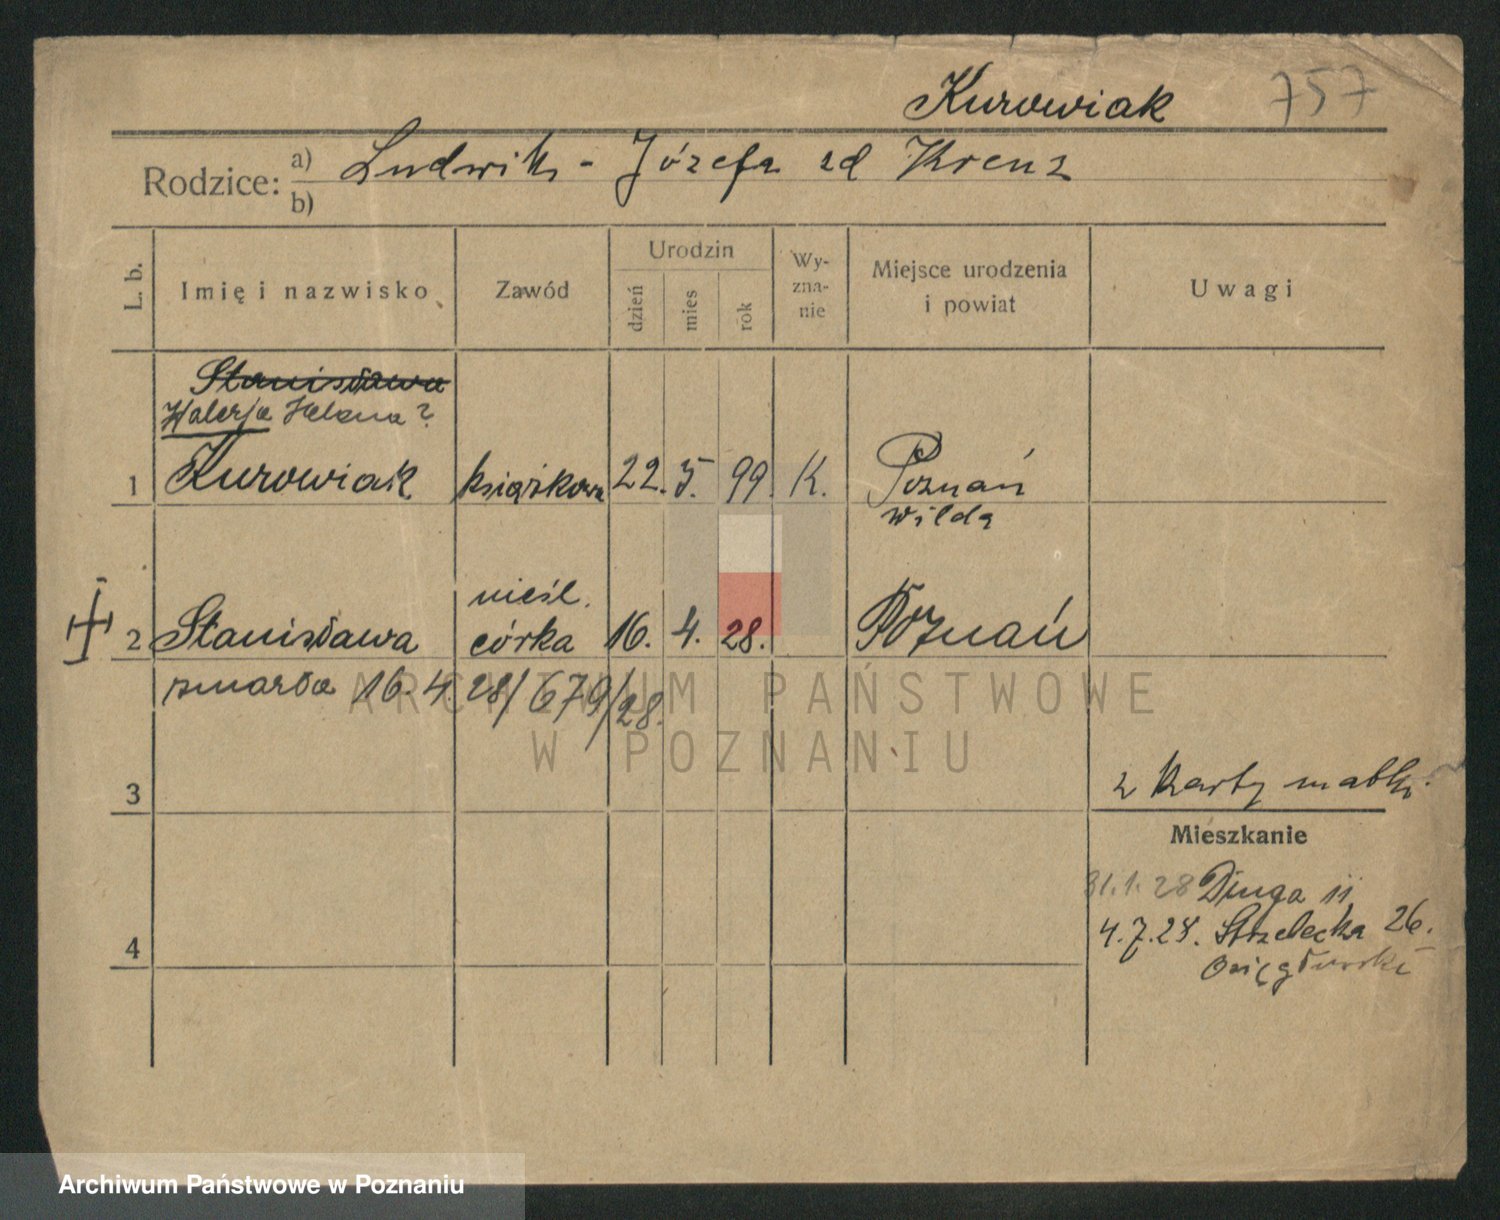 Kurowiak 757
Rodzice: a) Ludwik - Józefa zd Krenz
b)
L. b. Imię i nazwisko Zawód Urodzin dzień mies rok Wyznanie Miejsce urodzenia i powiat Uwagi
Stanisława
Walerja Helena?
1 Kurowiak książkowa 22. 5. 99. K. Poznań
Wilda
nieśl.
2 Stanisława córka 16. 4. 28. Poznań
zmarła 16. 4. 28/679/28.
ARCHIWUM PAŃSTWOWE
W POZNANIU
3 z karty matki
Mieszkanie
31.1.28 Długa 11
4 4.7.28. Strzelecka 26.
Archiwum Państwowe w Poznaniu